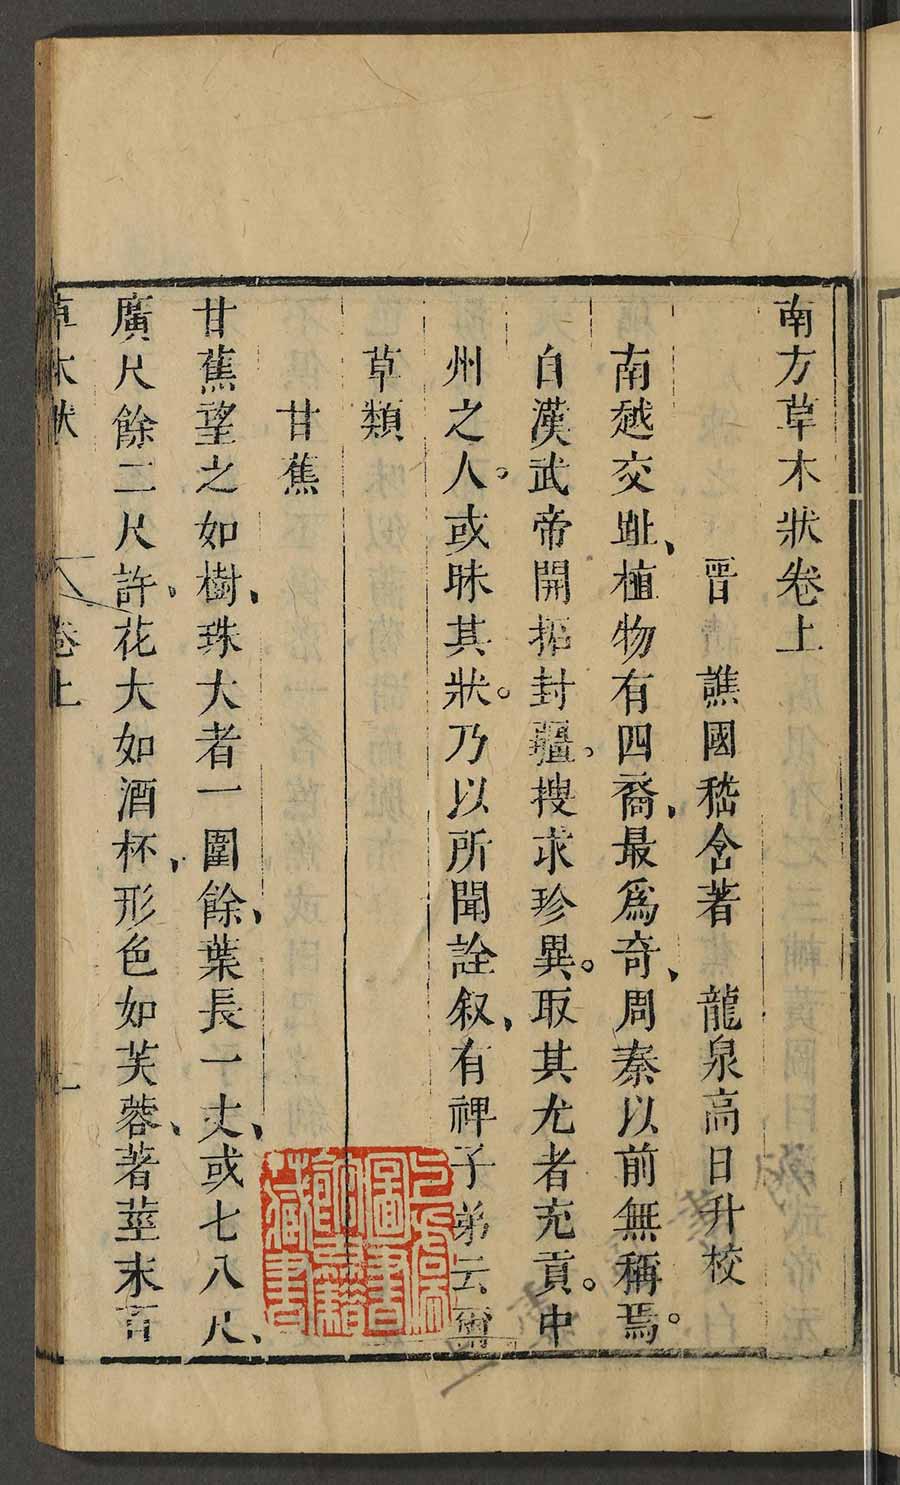 南方草木狀卷上
晉 譙國嵇含著 龍泉高日升校
南越交趾、植物有四裔、最爲奇、周秦以前無稱焉。
自漢武帝開拓封疆。搜求珍異。取其尤者充貢。中
州之人。或昧其狀。乃以所聞詮叙、有裨子弟云爾
草類
甘蕉
甘蕉望之如樹、珠大者一圍餘、葉長一丈、或七八尺、
廣尺餘二尺許、花大如酒杯、形色如芙蓉、著莖末百
草木狀 卷上 一
圖書
藏書